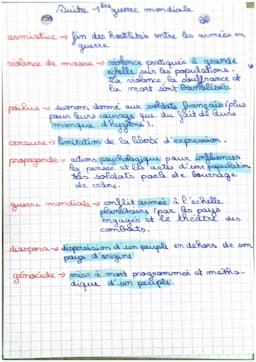 Suite 1ère guerre mondiale
armistice → fin des hostilités entre les armées en
guerre.
violence de masse → violence pratiquée à grande
échelle sur les populations.
La violence, la souffrance et
la mort sont banalisées
poilus → surnom donné aux soldats français (plus
pour leurs courage que du fait de leurs
manque d'hygiène).
censure → limitation de la liberté d'expression.
propagande → actions psychologique pour influencer
les pensée et les actes d'une population
les soldats parle de bourrage
de crâne.
guerre mondiale → conflit armée à l'échelle
planétaire (par les pays
engagés et le théâtre des
combats.
diaspora → dispersion d'un peuple en dehors de son
pays d'origine
génocide → mise à mort programmée et métho-
dique d'un peuple.